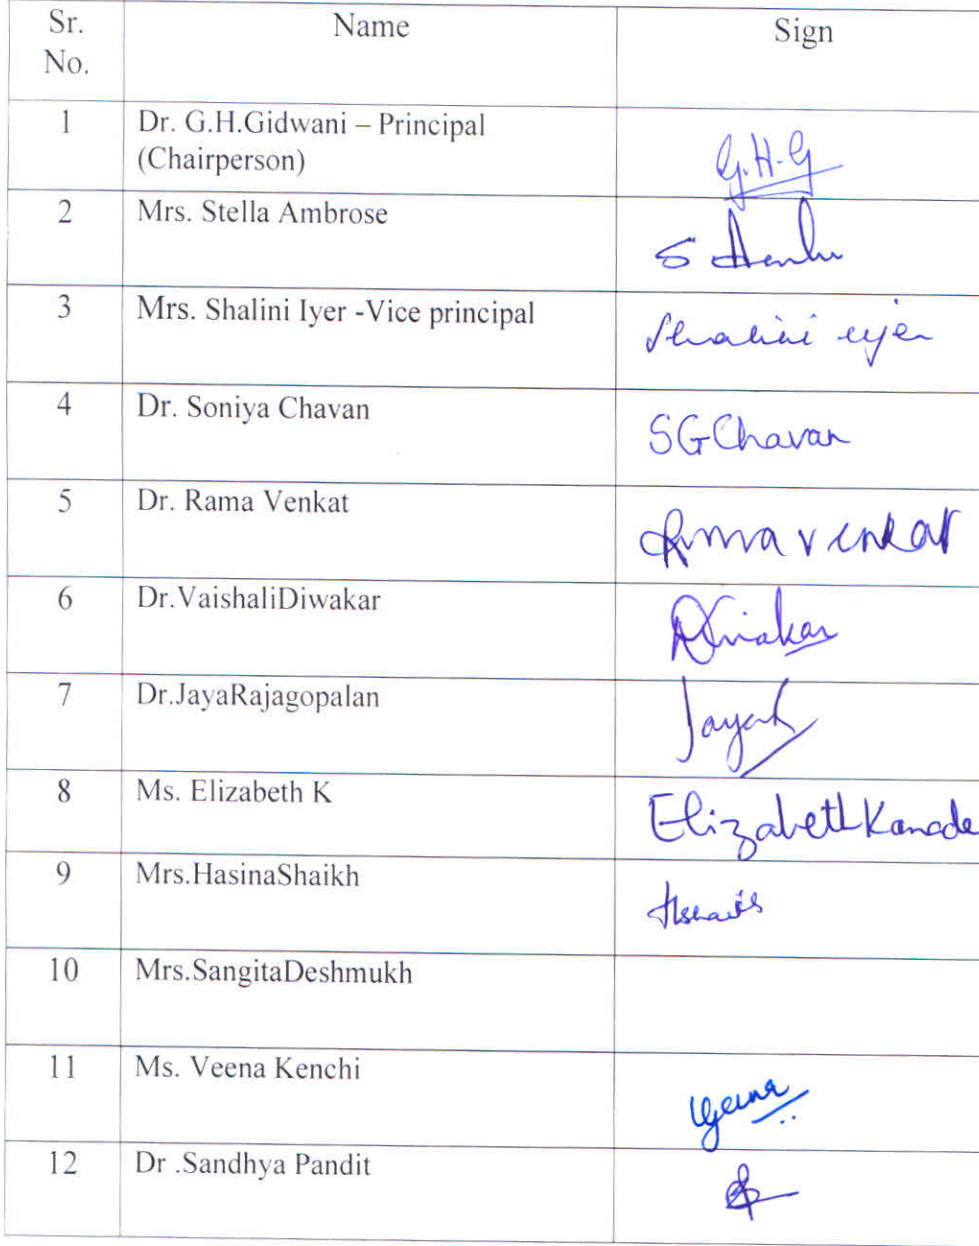 Sr. No. Name Sign
1 Dr. G.H.Gidwani – Principal
(Chairperson) G.H.G
2 Mrs. Stella Ambrose S
3 Mrs. Shalini Iyer -Vice principal Shalini Iyer
4 Dr. Soniya Chavan SGChavan
5 Dr. Rama Venkat Rama Venkat
6 Dr.VaishaliDiwakar
7 Dr.JayaRajagopalan
8 Ms. Elizabeth K Elizabeth Kanade
9 Mrs.HasinaShaikh
10 Mrs.SangitaDeshmukh
11 Ms. Veena Kenchi Veena
12 Dr .Sandhya Pandit